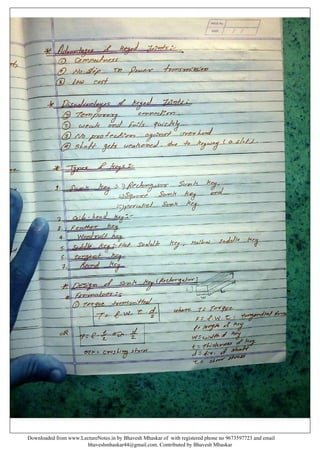 PAGE No.
DATE / /
* Advantages of keyed Joints :-
① Compactness
② No slip in Power transmission
③ Low cost
* Disadvantages of keyed Joints :-
① Temporary connection.
② weak and fails quickly.
③ No protection against overload
④ Shaft gets weakened due to keyway (a slot).
* Types of keys :-
1. Sunk key :- i) Rectangular Sunk key,
ii) Square Sunk key and
Sunk key.
2. Gib-head key :-
3. Feather key
4. Woodruff key
5. Saddle key : flat Saddle key, Hollow Saddle key
6. Tangent key
7. Round key
* Design of Sunk key (Rectangular)
* Formulae :-
① Torque transmitted
T = l·w·τ·d/2
where T = Torque
l = length of key
w = width of key
t = thickness of key
d = dia. of shaft
τ = shear stress
OR
σck = crushing stress
Downloaded from www.LectureNotes.in by Bhavesh Mhaskar of with registered phone no 9673597723 and email
bhaveshmhaskar44@gmail.com, Contributed by Bhavesh Mhaskar